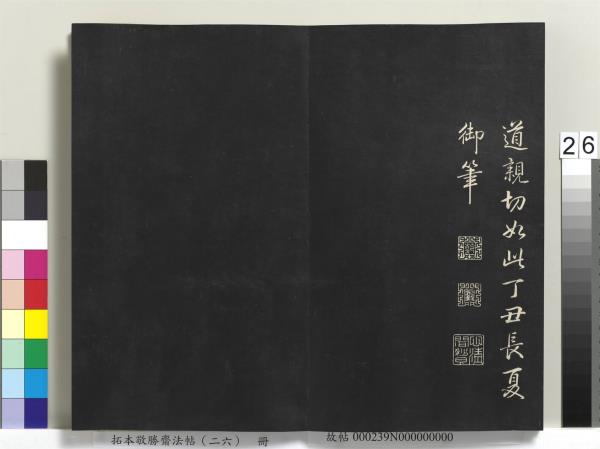 道親切如此丁丑長夏
御筆
26
拓本敬勝齋法帖（二六） 冊
故帖000239N000000000